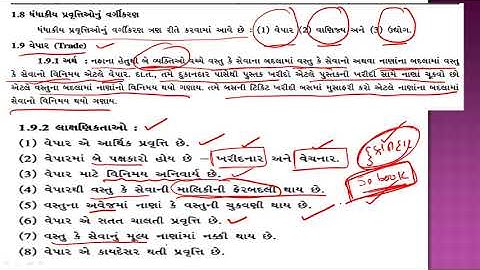 1.8 ધંધાકીય પ્રવૃત્તિઓનું વર્ગીકરણ
ધંધાકીય પ્રવૃત્તિઓનું વર્ગીકરણ ત્રણ રીતે કરવામાં આવે છે : (1) વેપાર (2) વાણિજ્ય અને (3) ઉદ્યોગ.
1.9 વેપાર (Trade)
1.9.1 અર્થ : નફાના હેતુથી બે વ્યક્તિઓ વચ્ચે વસ્તુ કે સેવાના બદલામાં વસ્તુ કે સેવાનો અથવા નાણાંના બદલામાં વસ્તુ
કે સેવાનો વિનિમય એટલે વેપાર. દા.ત., તમે દુકાનદાર પાસેથી પુસ્તક ખરીદો એટલે પુસ્તકની ખરીદી સામે નાણાં ચૂકવો છો
એટલે વસ્તુના બદલામાં નાણાંનો વિનિમય થયો ગણાય. તમે બસની ટિકિટ ખરીદી બસમાં મુસાફરી કરો એટલે નાણાંના બદલામાં
સેવાનો વિનિમય થયો ગણાય.
1.9.2 લાક્ષણિકતાઓ :
(1) વેપાર એ આર્થિક પ્રવૃત્તિ છે.
(2) વેપારમાં બે પક્ષકારો હોય છે – ખરીદનાર અને વેચનાર.
(3) વેપાર માટે વિનિમય અનિવાર્ય છે.
(4) વેપારથી વસ્તુ કે સેવાની માલિકીની ફેરબદલી થાય છે.
(5) વસ્તુના અવેજમાં નાણાં કે વસ્તુની ચુકવણી થાય છે.
(6) વેપાર એ સતત ચાલતી પ્રવૃત્તિ છે.
(7) વસ્તુ કે સેવાનું મૂલ્ય નાણાંમાં નક્કી થાય છે.
(8) વેપાર એ કાયદેસર થતી પ્રવૃત્તિ છે.